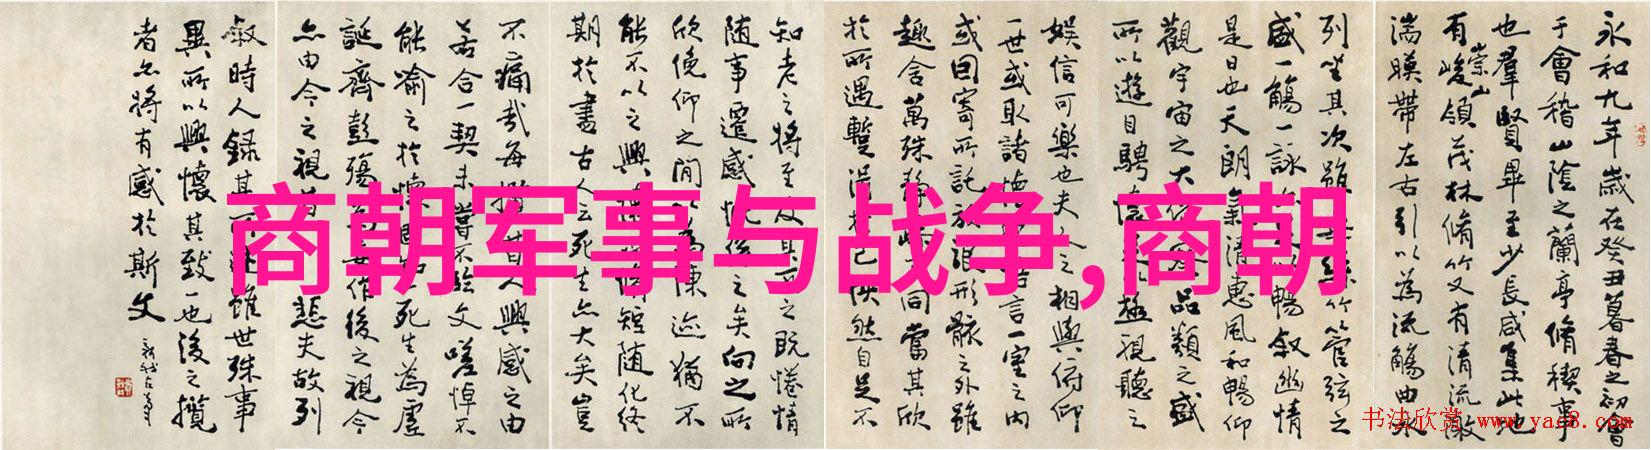 永和九年歲在癸丑暮春之初會
于會稽山陰之蘭亭脩稧事
也羣賢畢至少長咸集此地
有崇山峻領茂林脩竹又有清流激
湍暎帶左右引以為流觴曲水
列坐其次雖無絲竹管弦之
盛一觴一詠亦足以暢敘幽情
是日也天朗氣清惠風和暢仰
觀宇宙之大俯察品類之盛
所以遊目騁懷足以極視聽之
娛信可樂也夫人之相與俯仰
一世或取諸懷抱悟言一室之內
或因寄所託放浪形骸之外雖
趣舍萬殊靜躁不同當其欣
於所遇暫得於己怏然自足不
知老之將至及其所之既惓情
随事遷感慨係之矣向之所
欣俛仰之間以為陳迹猶不
能不以之興懷況脩短随化終
期於盡古人云死生亦大矣豈
不痛哉每攬昔人興感之由
若合一契未嘗不臨文嗟悼不
能喻之於懷固知一死生為虛
誕齊彭殤為妄作後之視今
亦由今之視昔悲夫故列
敘時人録其所述雖世殊事
異所以興懷其致一也後之攬
者亦將有感於斯文
商朝军事与战争,商朝
书法欣赏 www.yac8.com